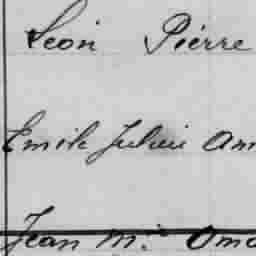 Léon Pierre
Emile Julien Am
Jean M.ie Oma